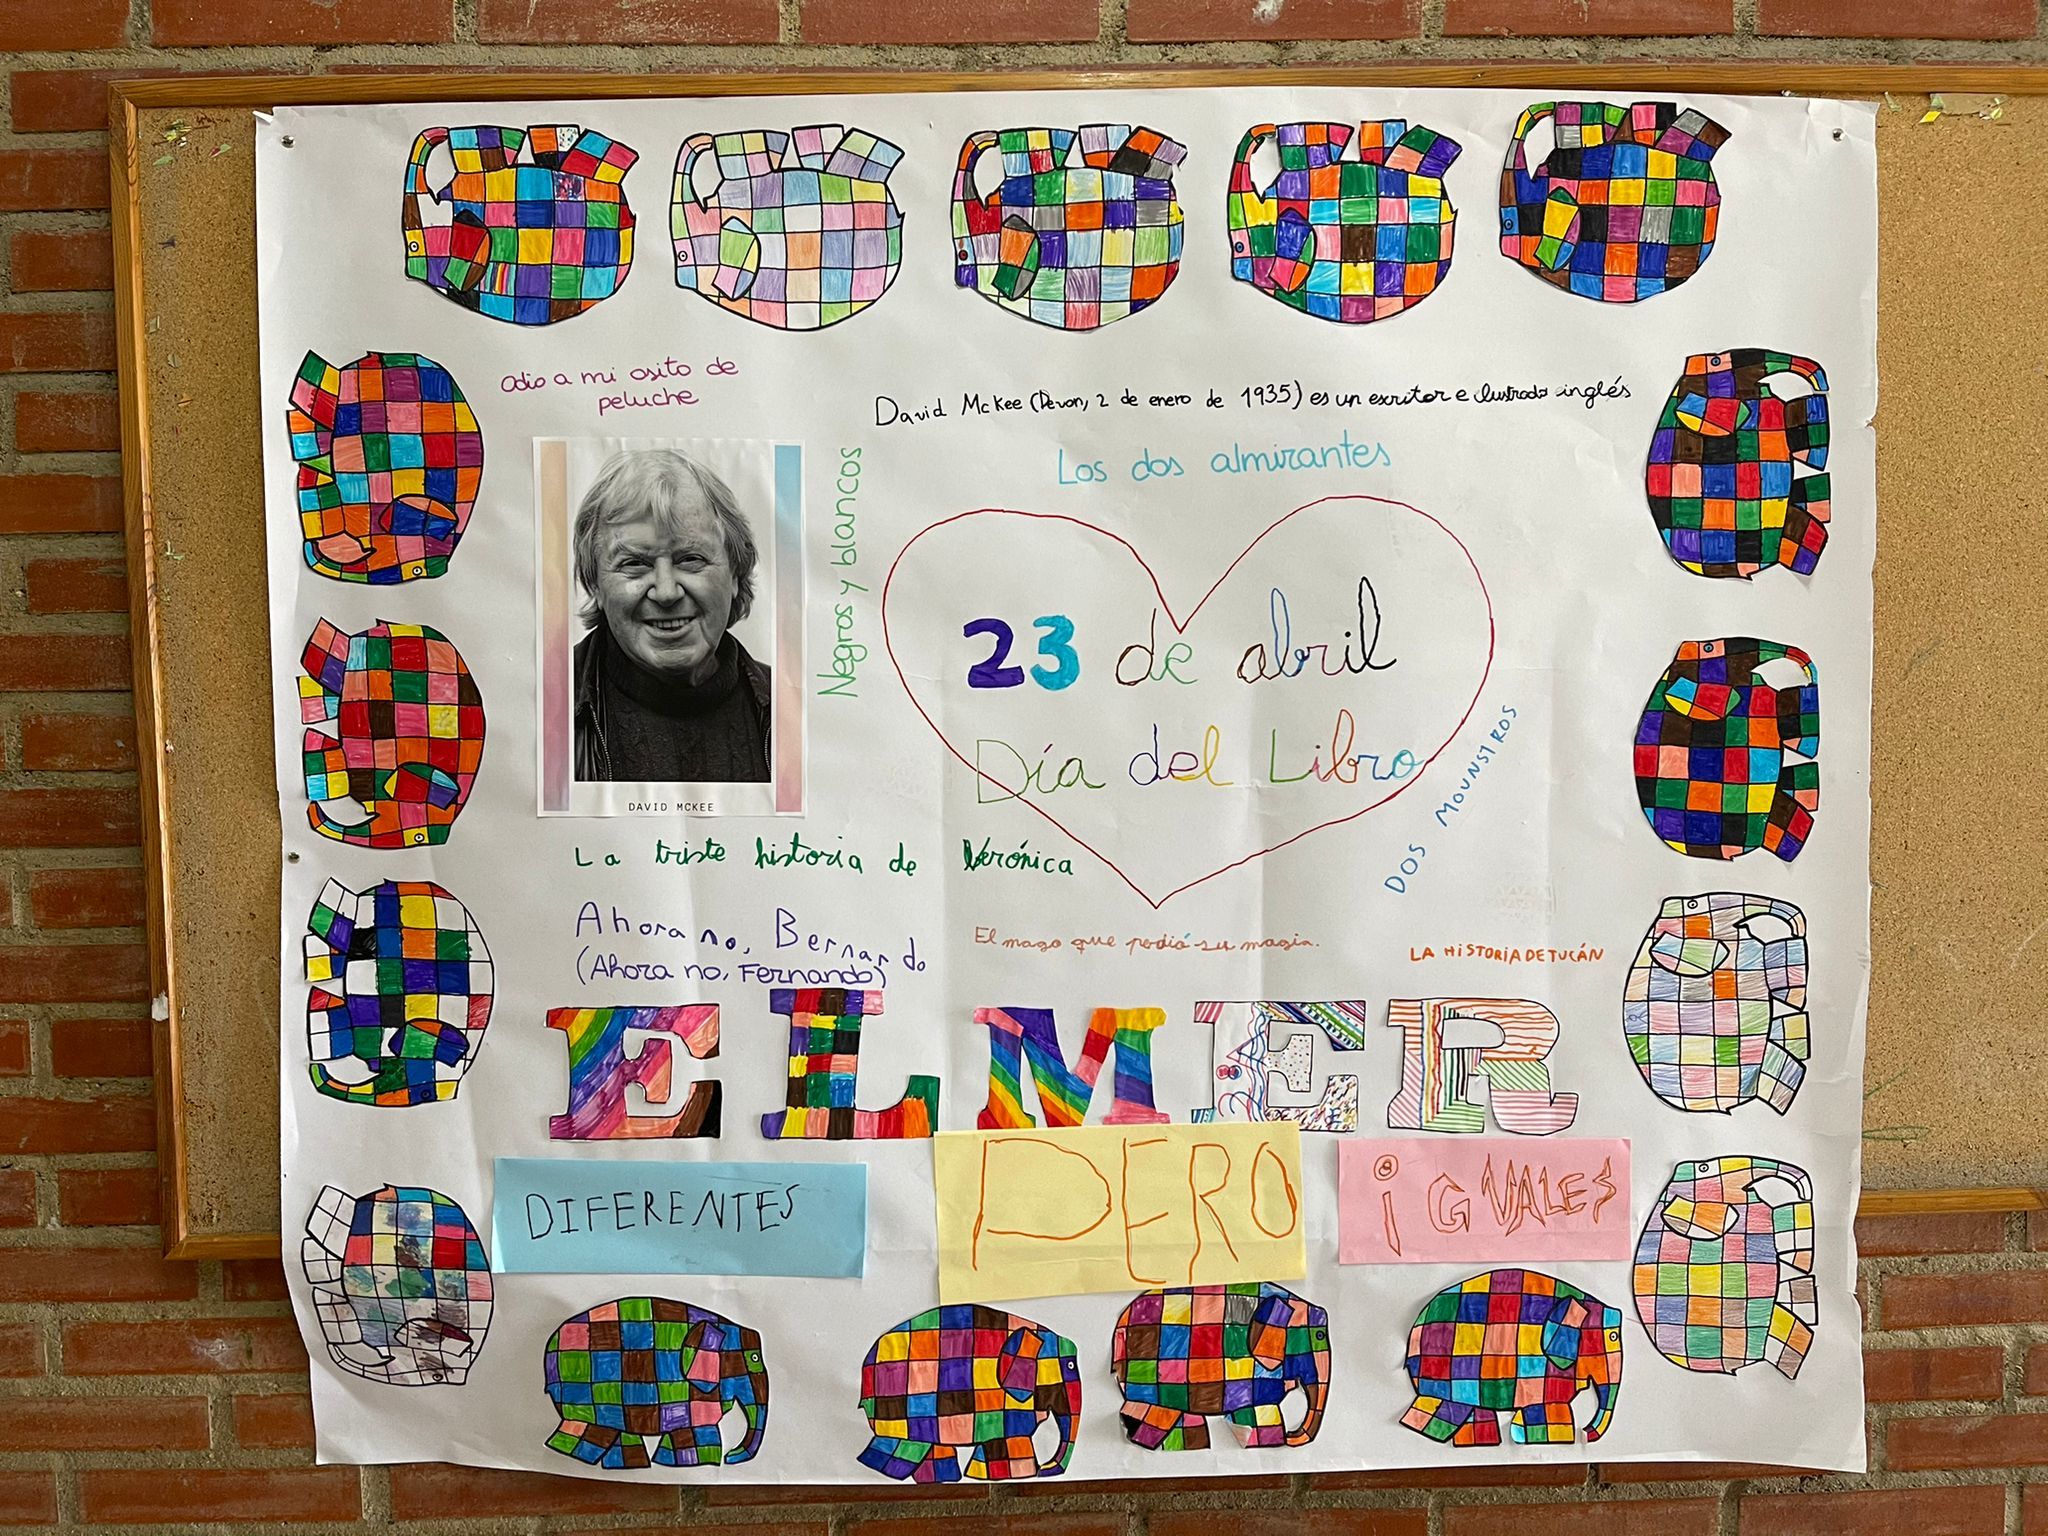 Odio a mi osito de
peluche
David McKee (Devon, 2 de enero de 1935) es un escritor e ilustrado inglés
Los dos almirantes
Negros y blancos
23 de abril
Día del Libro
DAVID MCKEE
DOS MOUNSTROS
La triste historia de Verónica
Ahora no, Bernardo
(Ahora no, Fernando)
El mago que perdió su magia.
LA HISTORIA DE TUCÁN
ELMER
DIFERENTES
PERO
iGUALES